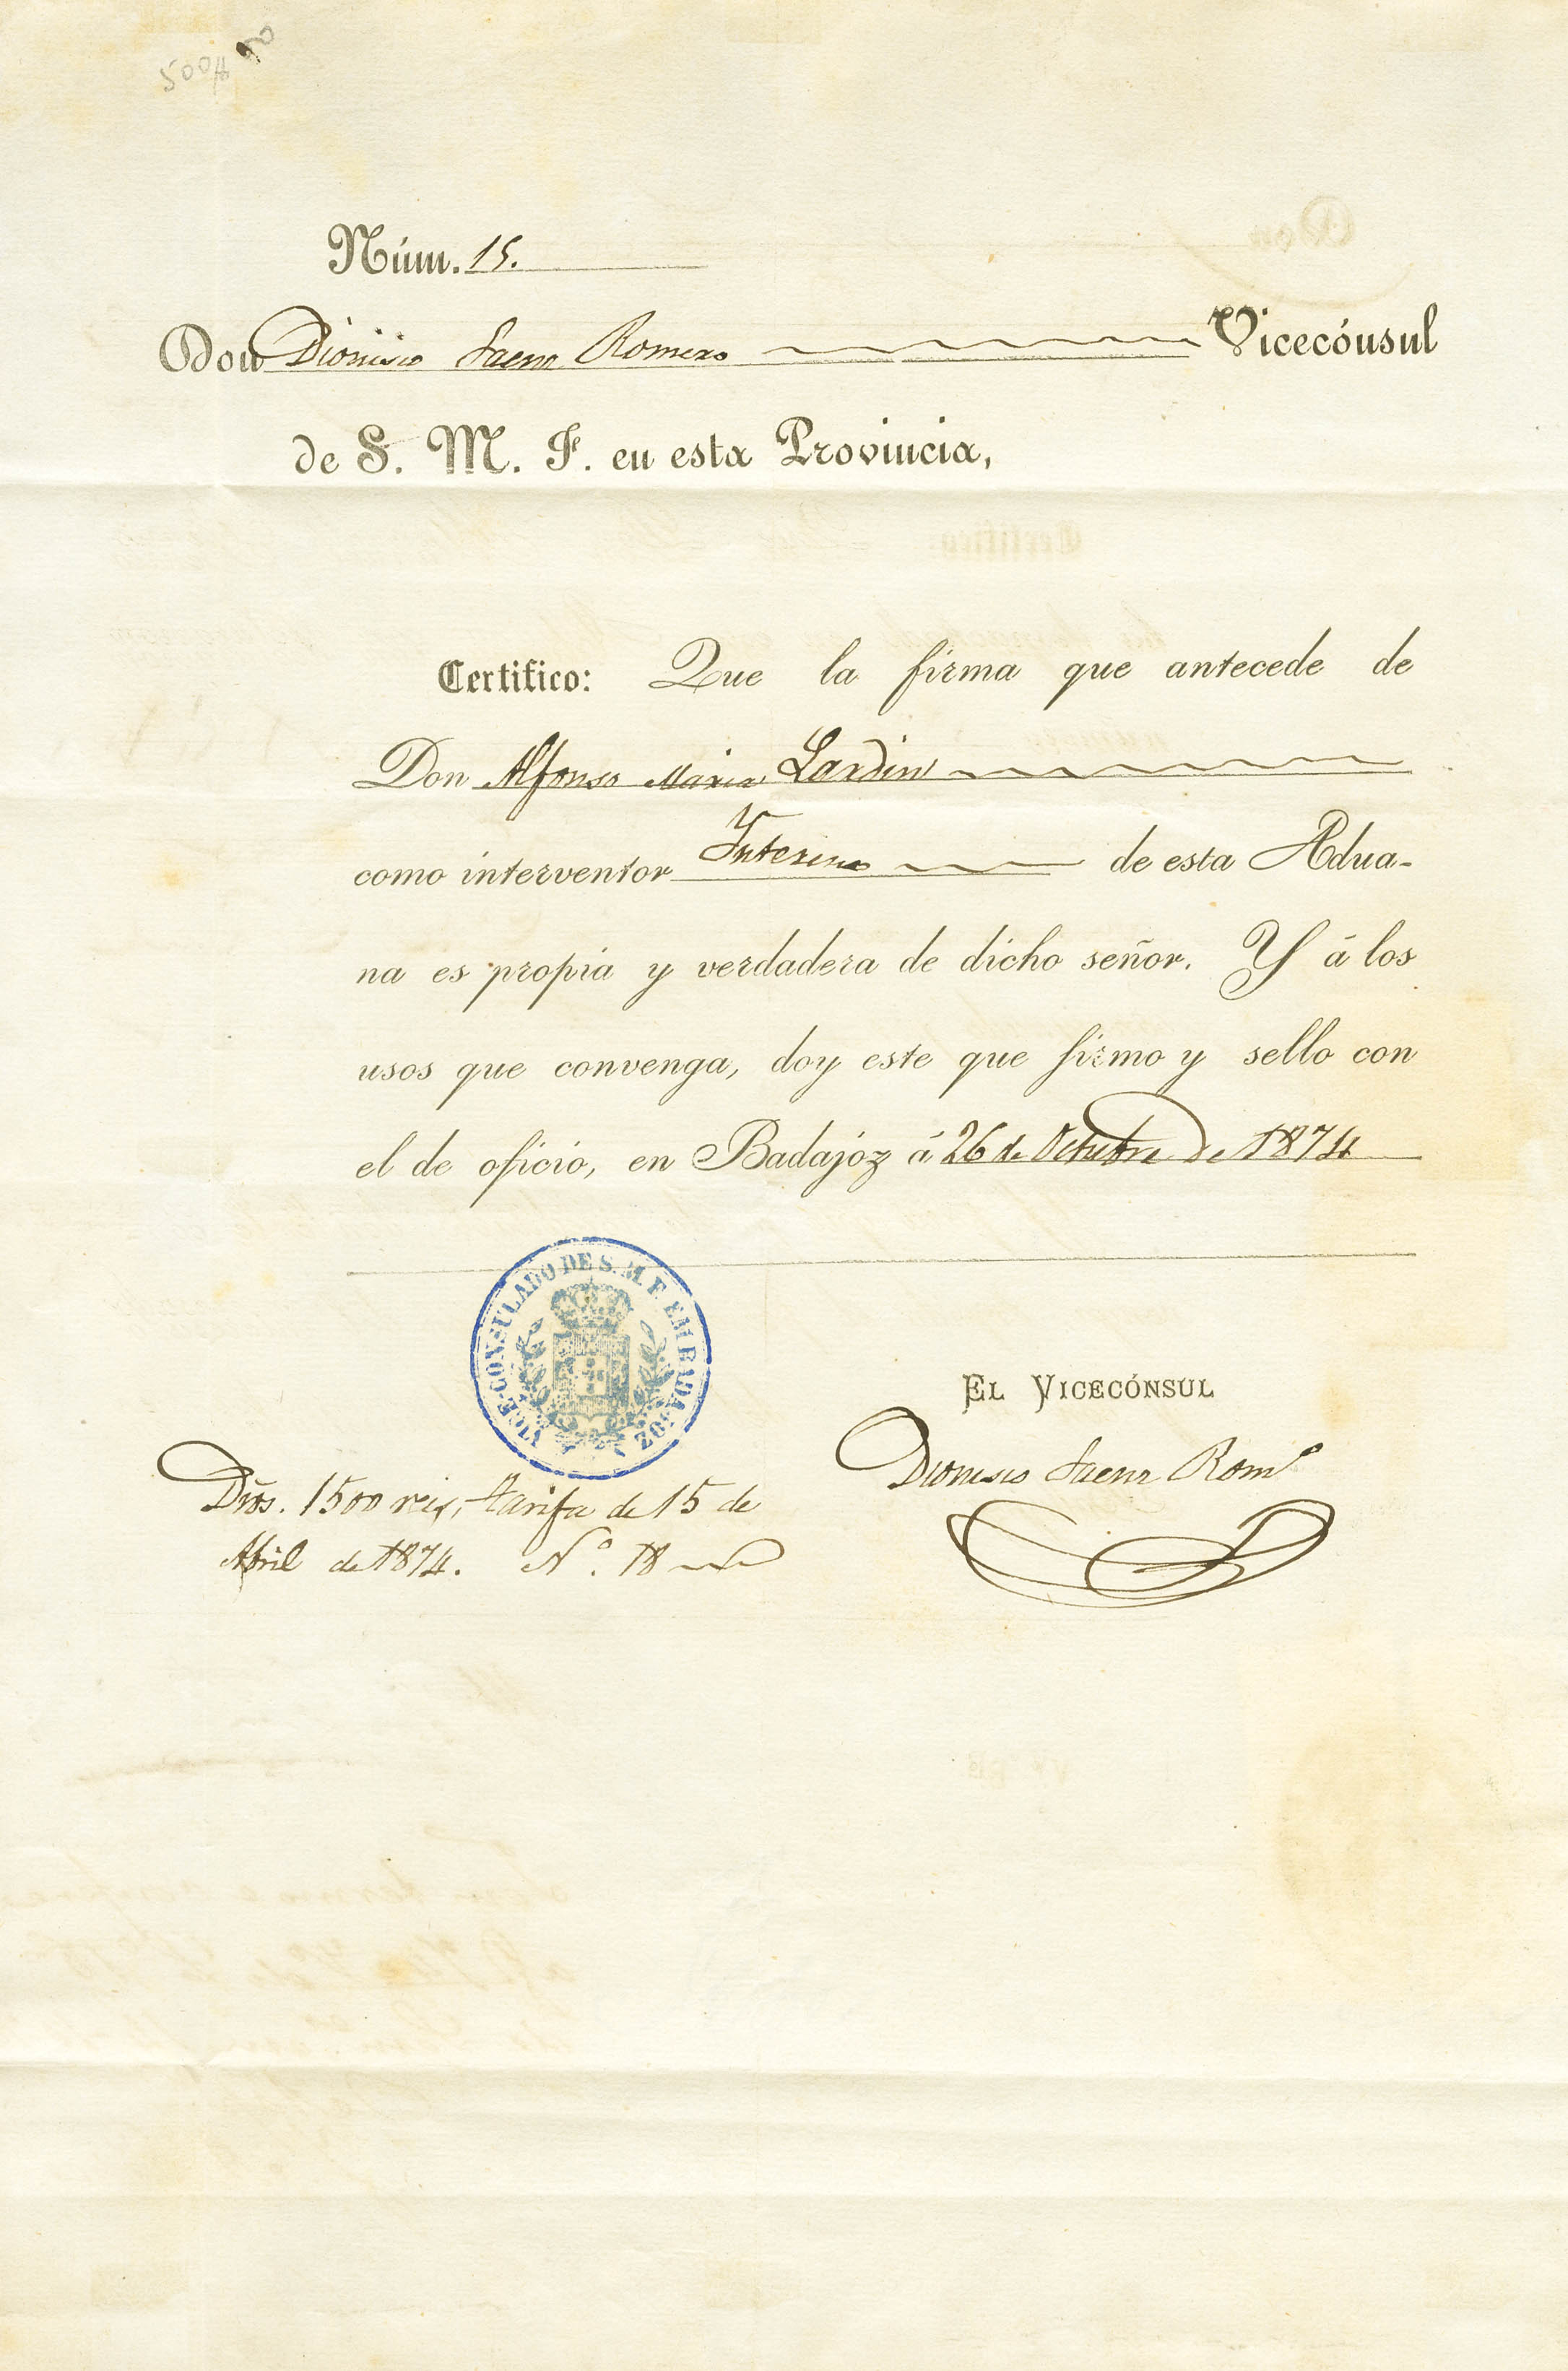 Núm. 15.
Don Dionisio Saenz Romero Vicecónsul
de S. M. F. en esta Provincia,
Certifico: Que la firma que antecede de
Don Alfonso Maria Lardin
como interventor Interino de esta Adua-
na es propia y verdadera de dicho señor. Y á los
usos que convenga, doy este que firmo y sello con
el de oficio, en Badajóz á 26 de Octubre de 1874
VICE-CONSULADO DE S. M. F. EM BADAJOZ
EL VICECÓNSUL
Dionisio Saenz Romº
Dros. 1500 reis, tarifa de 15 de
Abril de 1874. Nº. 18